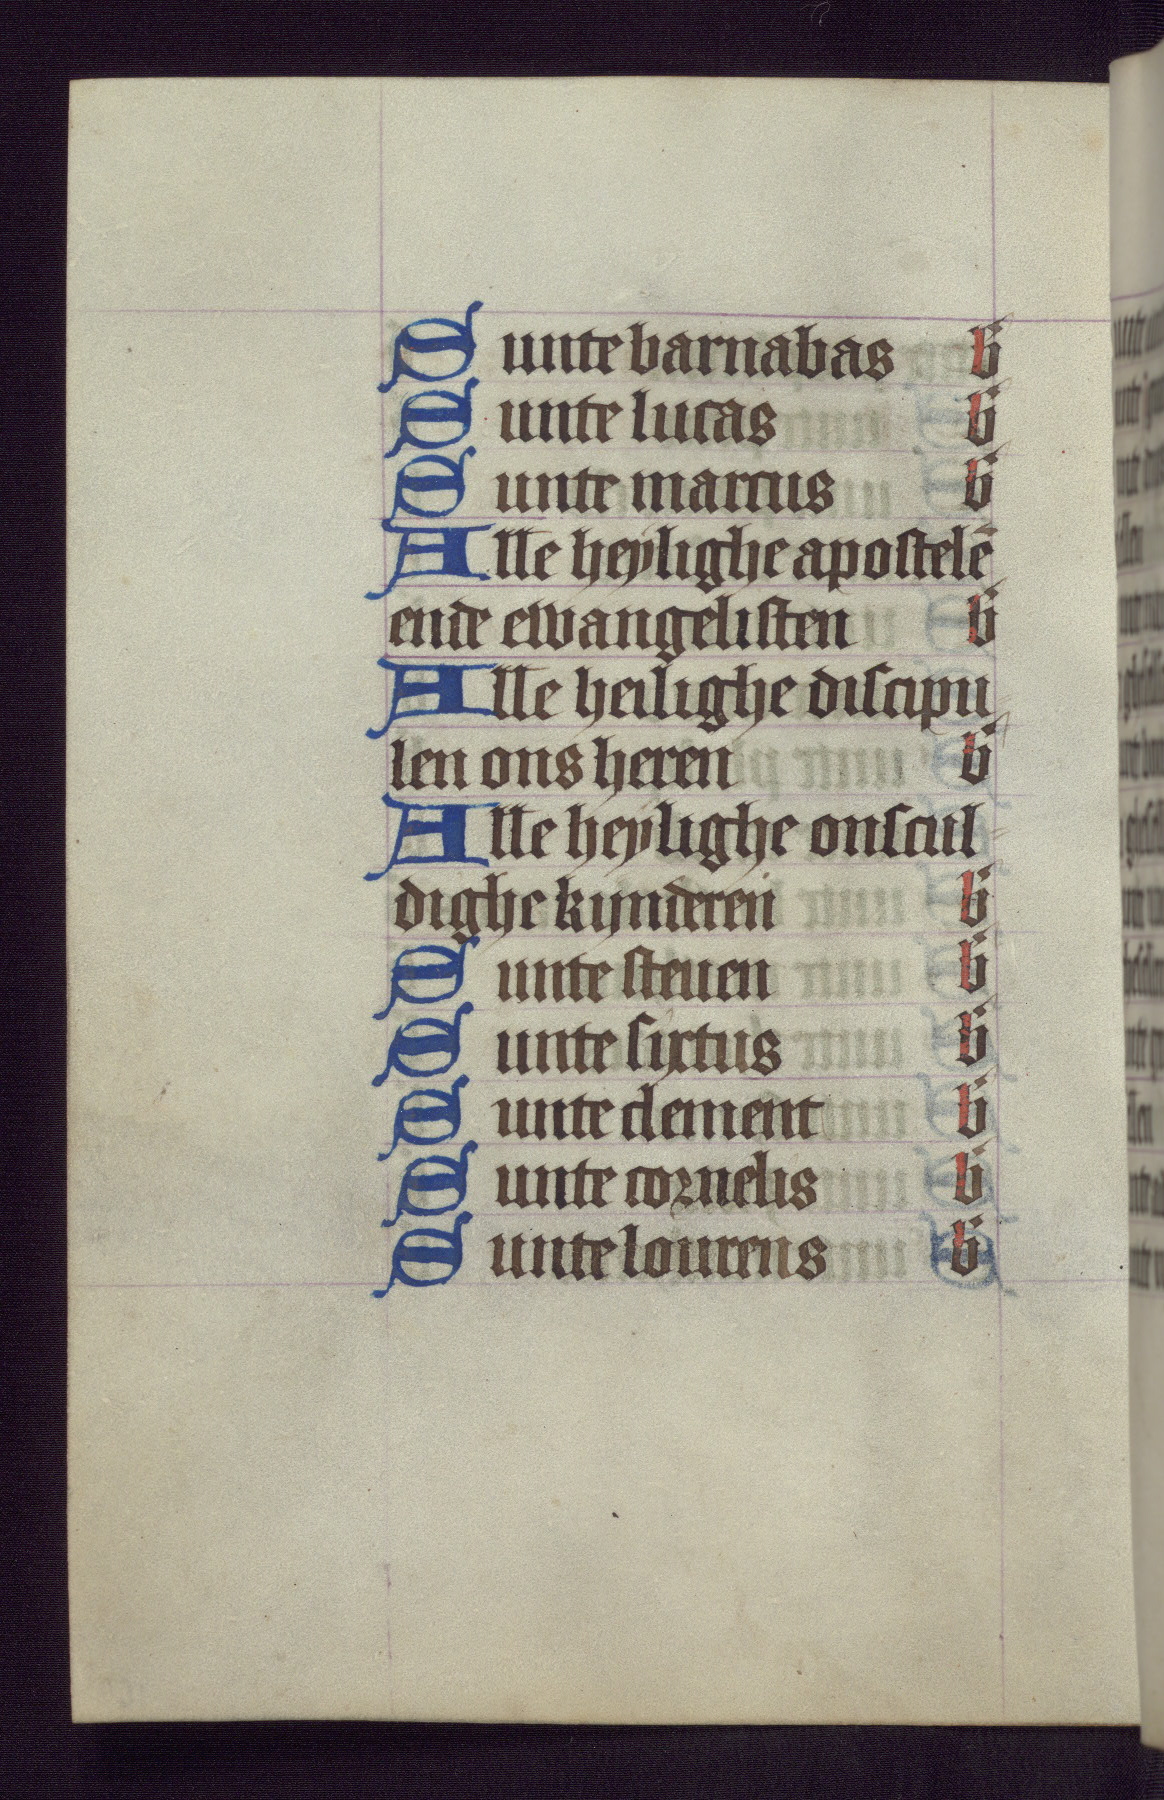 Sunte barnabas b
Sunte lucas b
Sunte marcus b
Alle heylighe apostelē
ende ewangelisten b
Alle heilighe discipu
len ons heren b
Alle heylighe onscul
dighe kijnderen b
Sunte steuen b
Sunte sixtus b
Sunte clement b
Sunte cornelis b
Sunte lourens b